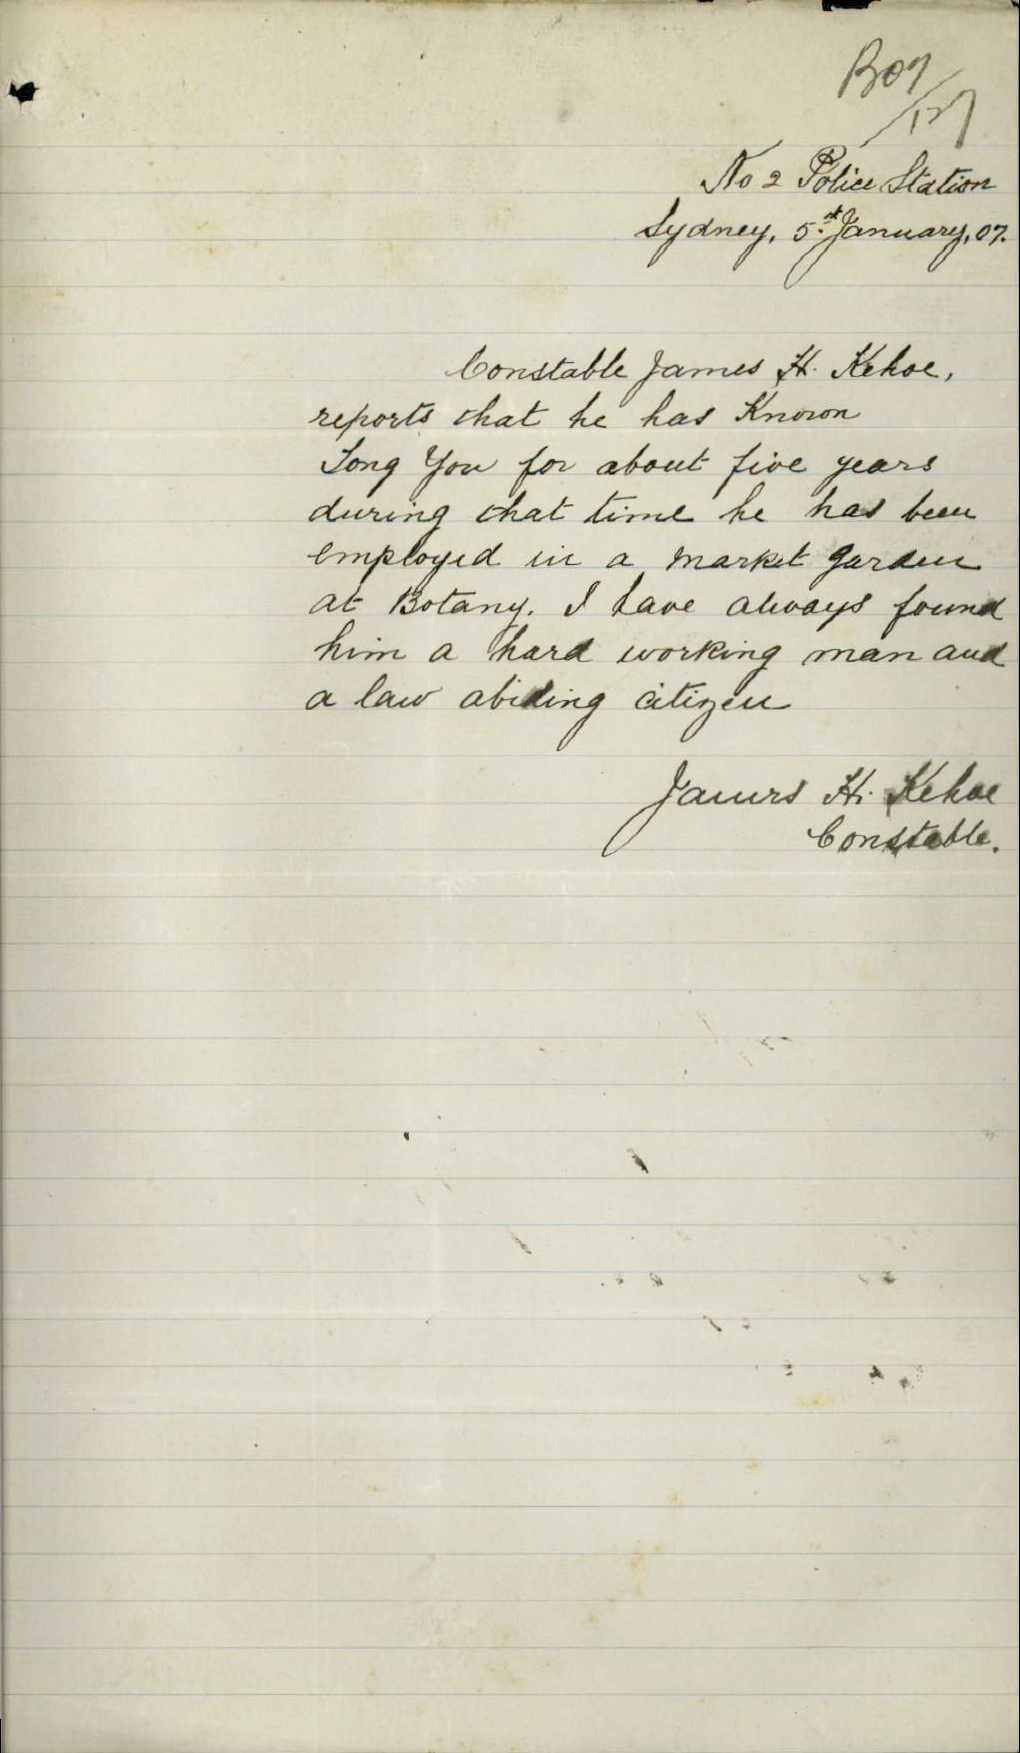 B07
/127
No 2 Police Station
Sydney, 5.st January, 07.
Constable James H. Kehoe,
reports that he has Known
Song You for about five years
during that time he has been
employed in a market garden
at Botany. I have always found
him a hard working man and
a law abiding citizen
James H. Kehoe
Constable.